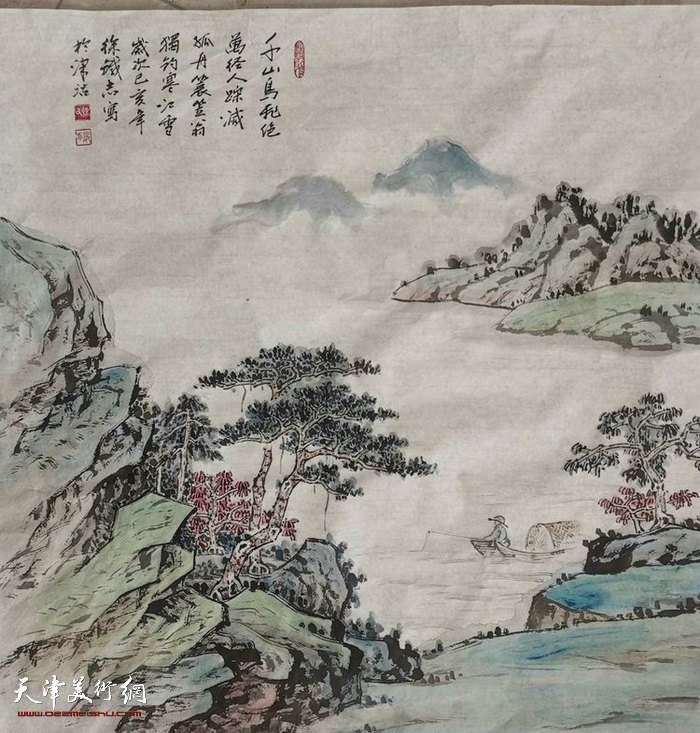 千山鳥飛絶
萬徑人踪滅
孤舟簑笠翁
獨釣寒江雪
歲次己亥年
徐鐵志寫
於津沽
天津美術網
www.022meishu.com